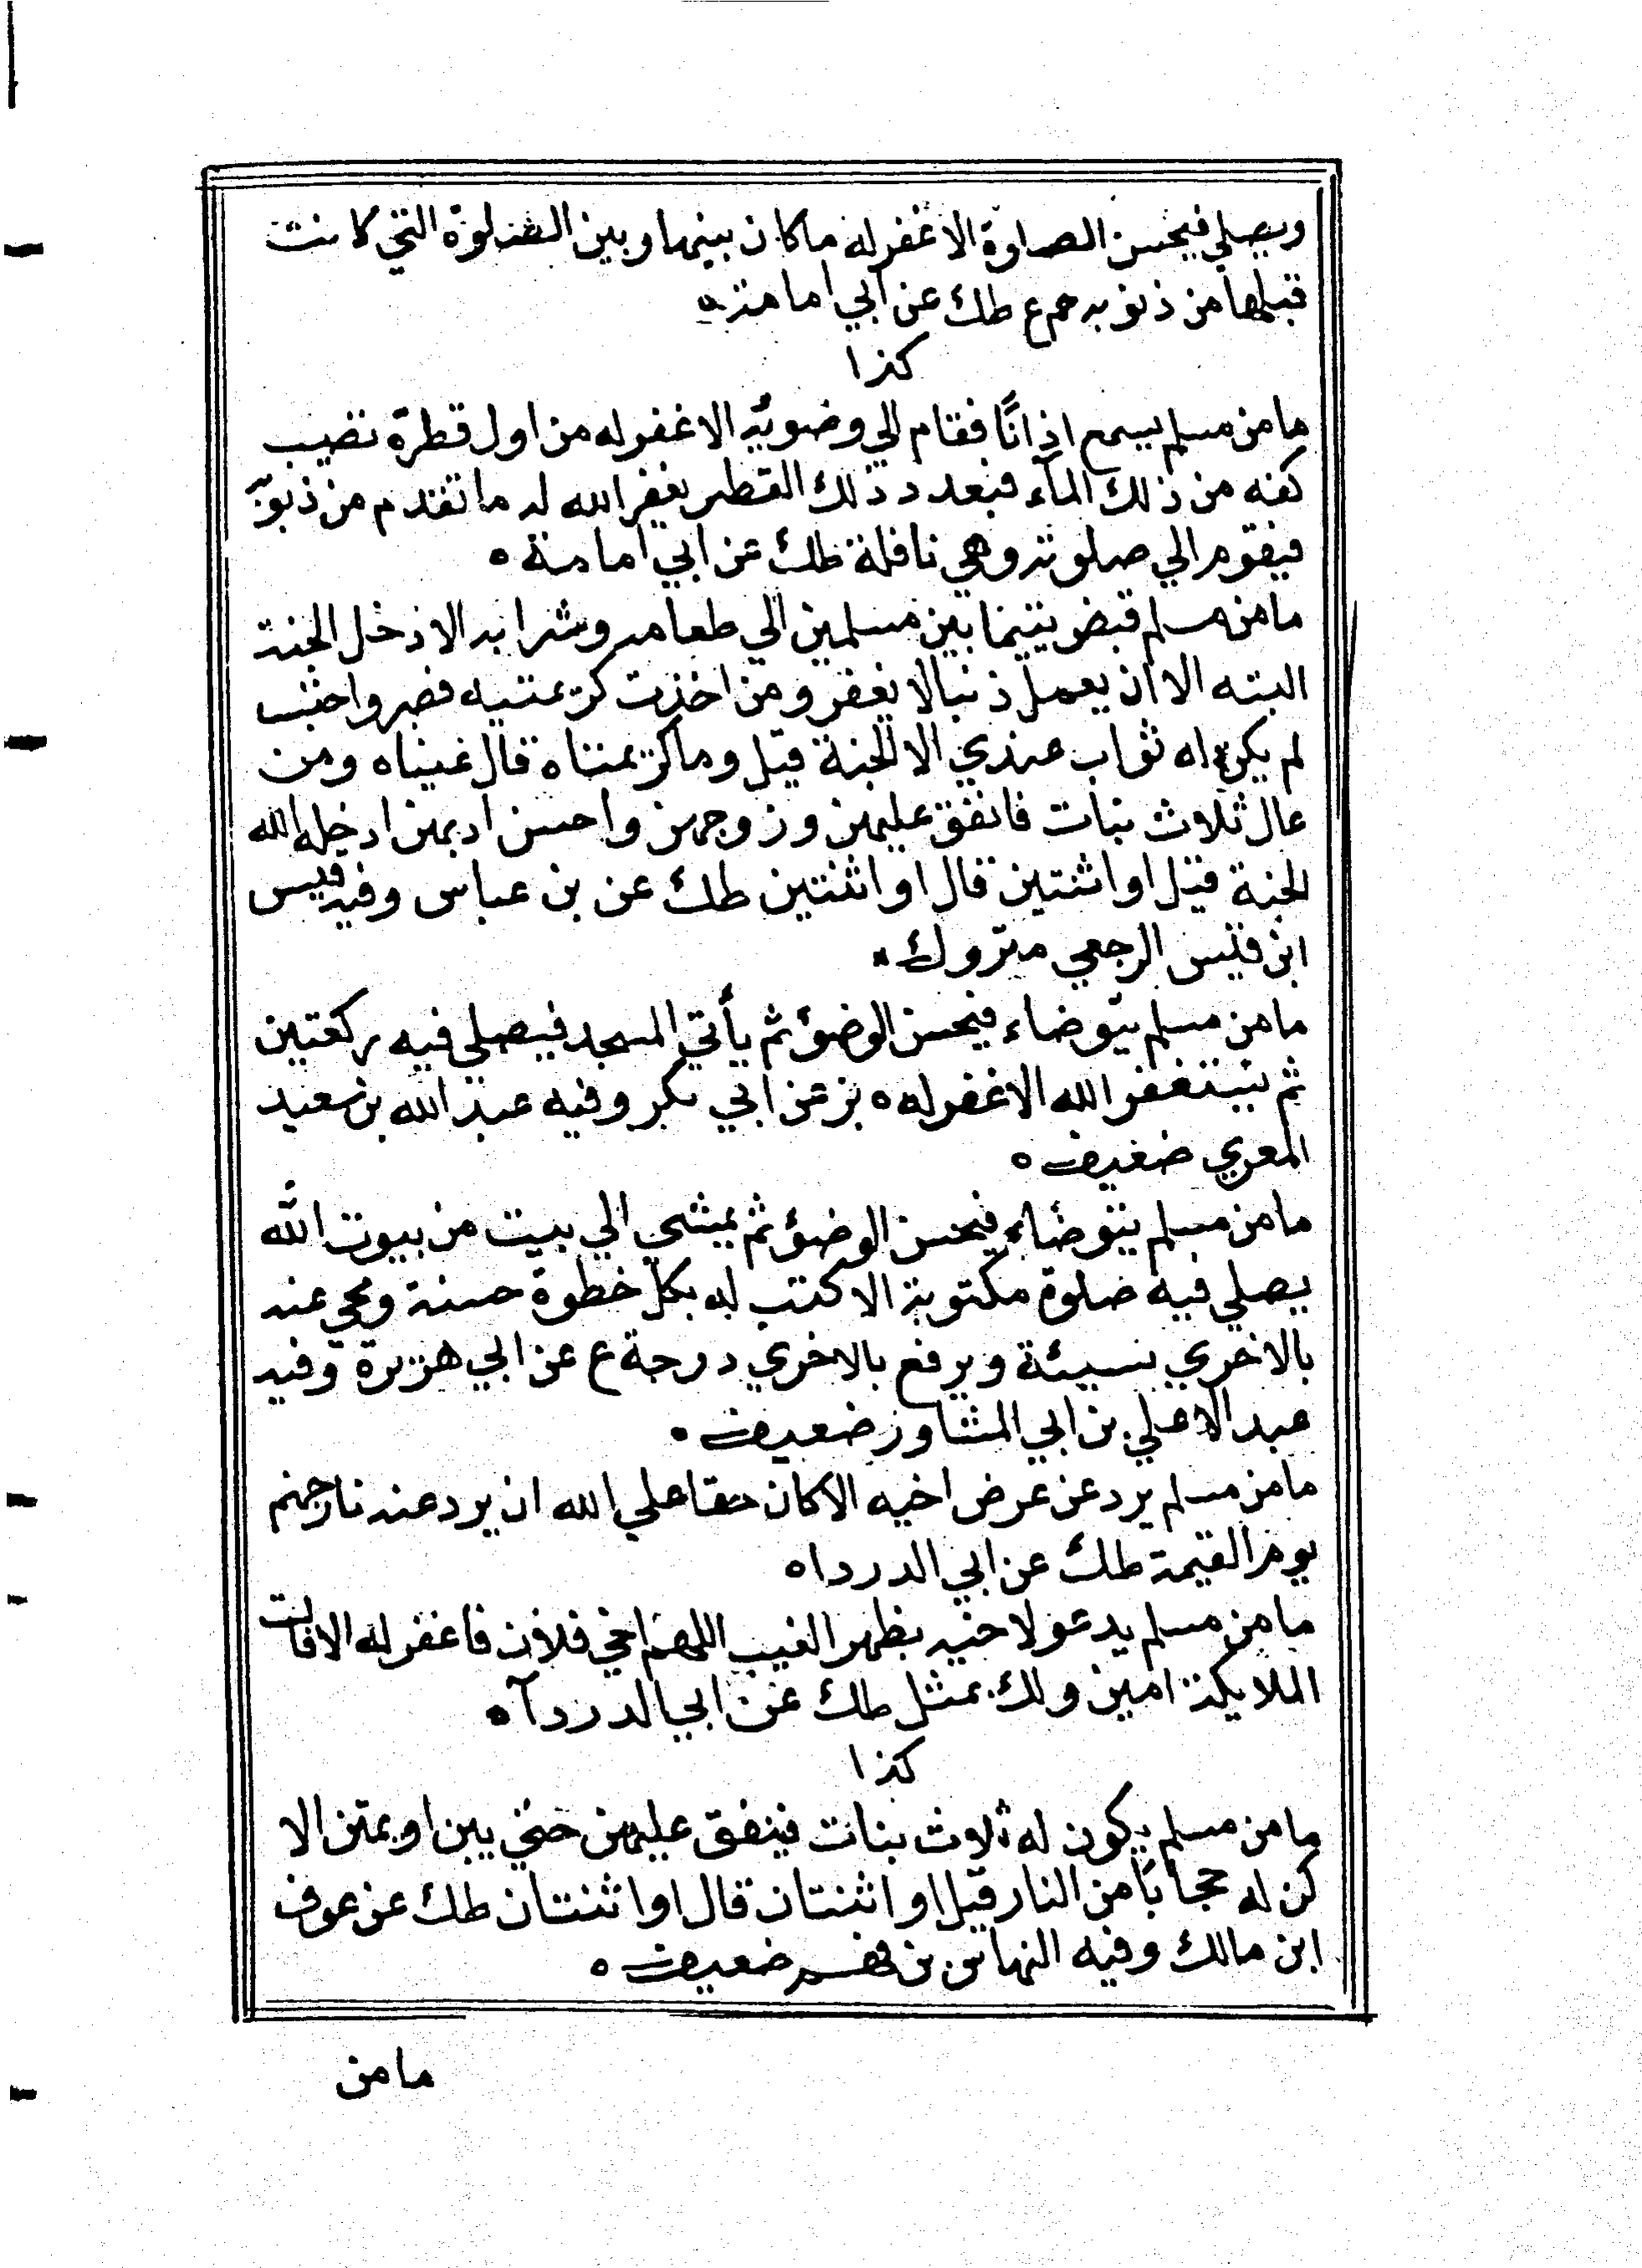 ويصلي فيحسن الصلوة الا غفر له ما كان بينها وبين الصلوة التي كانت
قبلها من ذنوبه حم ع طك عن ابي امامة ه
كذا
ما من مسلم يسمع اذانًا فقام الي وضويّه الا غفر له من اول قطرة تصيب
كفه من ذلك المآء فبعدد ذلك القطر يغفر الله له ما تقدم من ذنوبه
فيقوم الي صلوته وهي نافلة طك عن ابي امامة ه
ما من مسلم قبض يتيما بين مسلمين الي طعامه وشرابه الا دخل الجنة
البته الا ان يعمل ذنبا لا يغفر ومن اخذت كريمتيه فصبر واحتسب
لم يكن له ثواب عندي الا الجنة قيل وما كريمتاه قال عيناه ومن
عال ثلاث بنات فانفق عليهن وزوجهن واحسن ادبهن ادخله الله
الجنة قيل او اثنتين قال او اثنتين طك عن بن عباس وفيه قيس
ابن قيس الرجعي متروك ه
ما من مسلم يتوضاء فيحسن الوضؤ ثم يأتي المسجد فيصلي فيه ركعتين
ثم يستغفر الله الا غفر له ه بز عن ابي بكر وفيه عبد الله بن سعيد
المعري ضعيف ه
ما من مسلم يتوضاء فيحسن الوضؤ ثم يمشي الي بيت من بيوت الله
يصلي فيه صلوة مكتوبة الا كتب له بكل خطوة حسنة ومحي عنه
بالاخري سيئة ويرفع بالاخري درجة ع عن ابي هريرة وفيه
عبد الاعلي بن ابي المشاور ضعيف ه
ما من مسلم يرد عن عرض اخيه الا كان حقا علي الله ان يرد عنه نار جهنم
يوم القيمة طك عن ابي الدرداه
ما من مسلم يدعو لاخيه بظهر الغيب اللهم اخي فلان فاغفر له الا قالت
الملايكة امين ولك بمثل طك عن ابي الدردآ ه
كذا
ما من مسلم يكون له ثلاث بنات فينفق عليهن حتي يبن او يمتن الا
كن له حجابًا من النار قيل او اثنتان قال او اثنتان طك عن عوف
ابن مالك وفيه النهاس بن فهم ضعيف ه
ما من